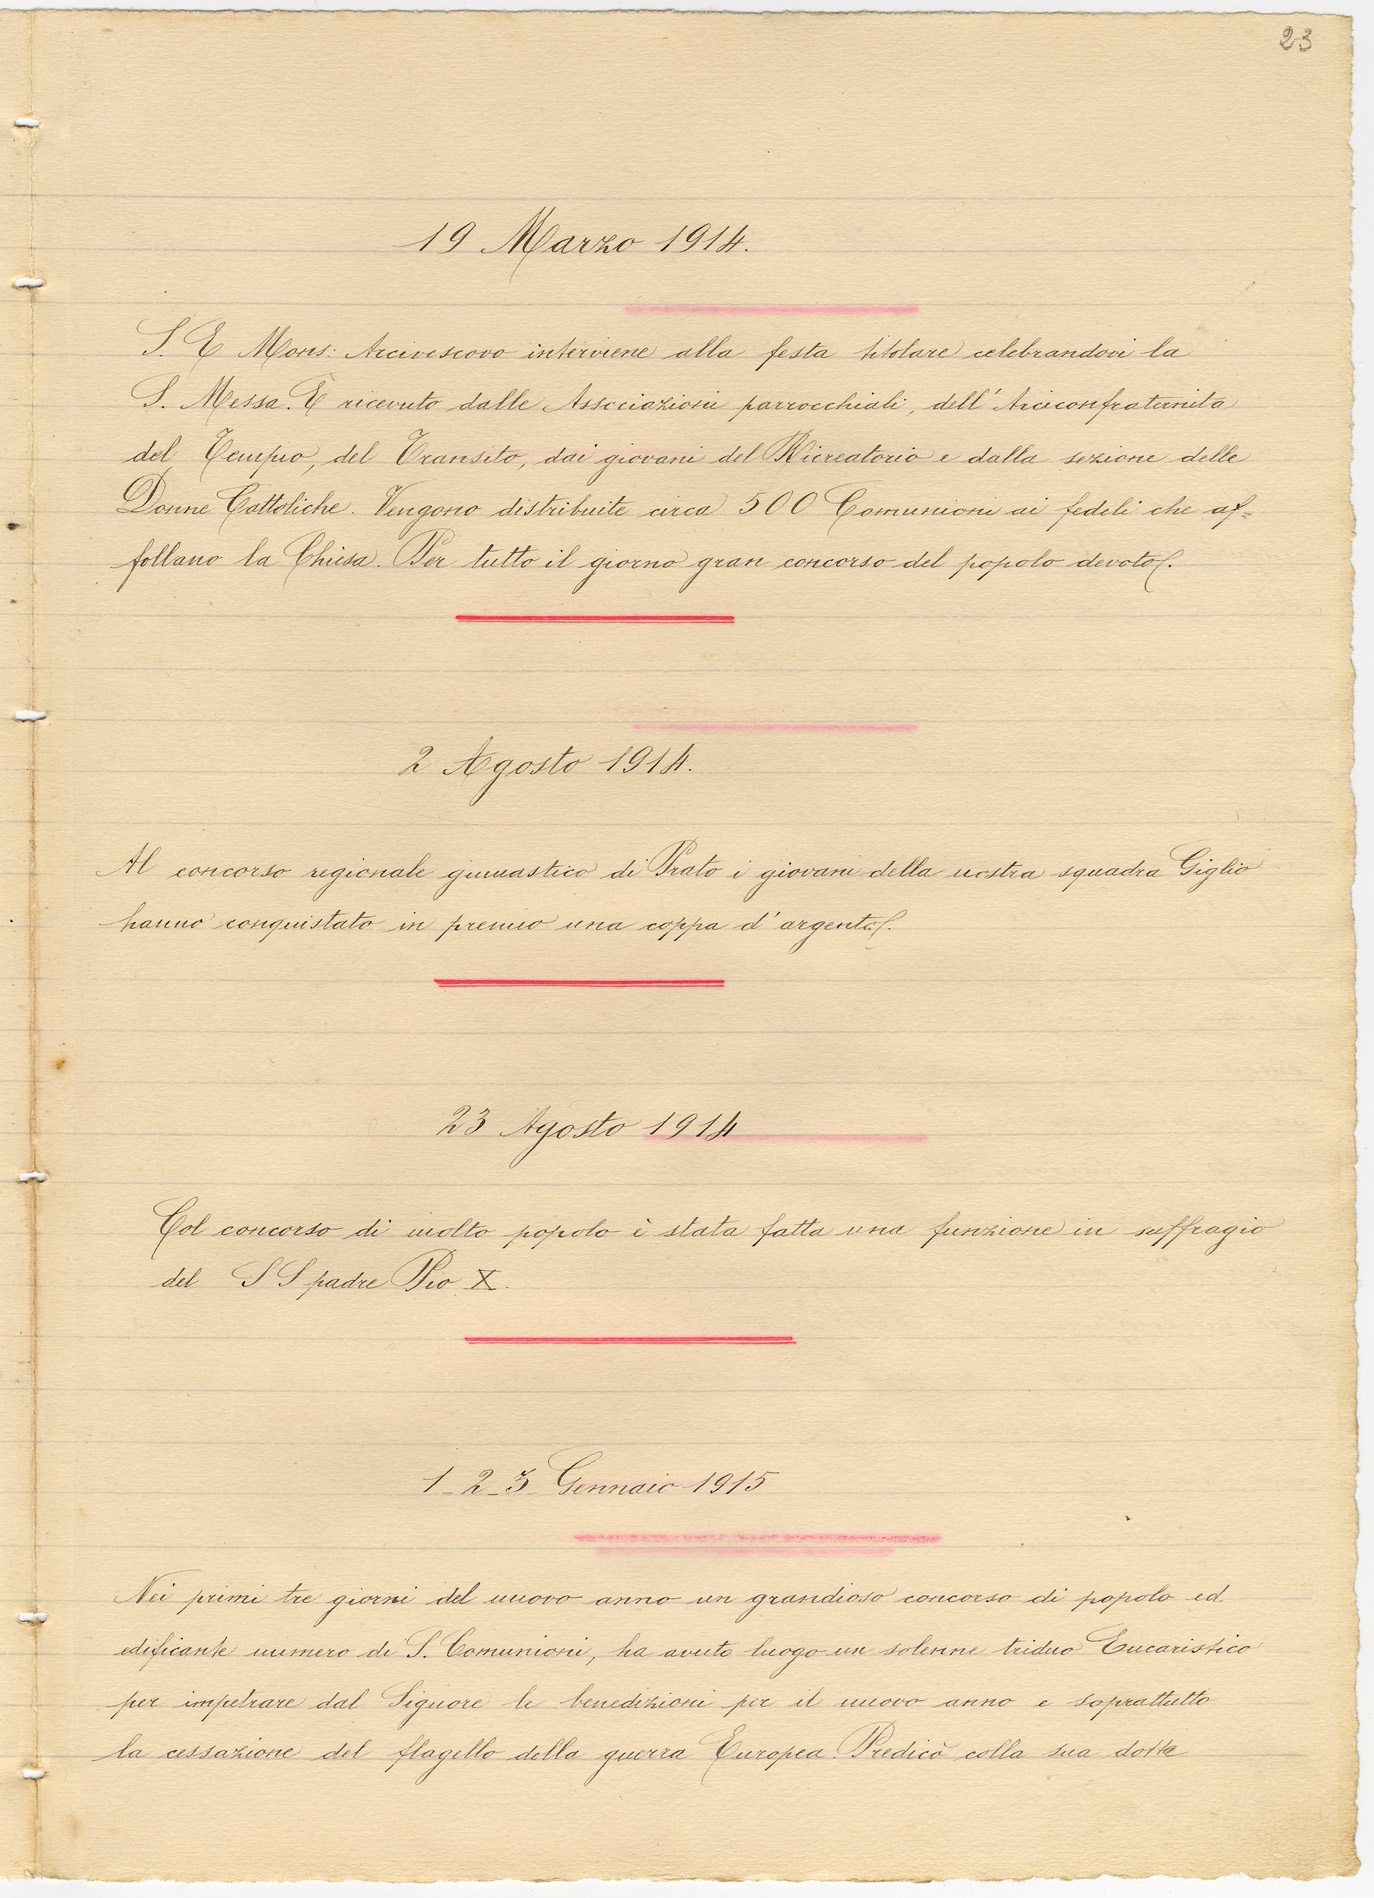 23
19 Marzo 1914.
S. E Mons: Arcivescovo interviene alla festa titolare celebrandovi la
S. Messa. È ricevuto dalle Associazioni parrocchiali, dell'Arciconfraternita
del Tempio, del Transito, dai giovani del Ricreatorio e dalla sezione delle
Donne Cattoliche. Vengono distribuite circa 500 Comunioni ai fedeli che af=
follano la Chiesa. Per tutto il giorno gran concorso del popolo devoto.
2 Agosto 1914.
Al concorso regionale ginnastico di Prato i giovani della nostra squadra Giglio
hanno conquistato in premio una coppa d'argento.
23 Agosto 1914
Col concorso di molto popolo è stata fatta una funzione in suffragio
del S S padre Pio X.
1_2_3_ Gennaio 1915
Nei primi tre giorni del nuovo anno un grandioso concorso di popolo ed
edificante numero di S. Comunioni, ha avuto luogo un solenne triduo Eucaristico
per impetrare dal Signore le benedizioni per il nuovo anno e soprattutto
la cessazione del flagello della guerra Europea. Predicò colla sua dotta